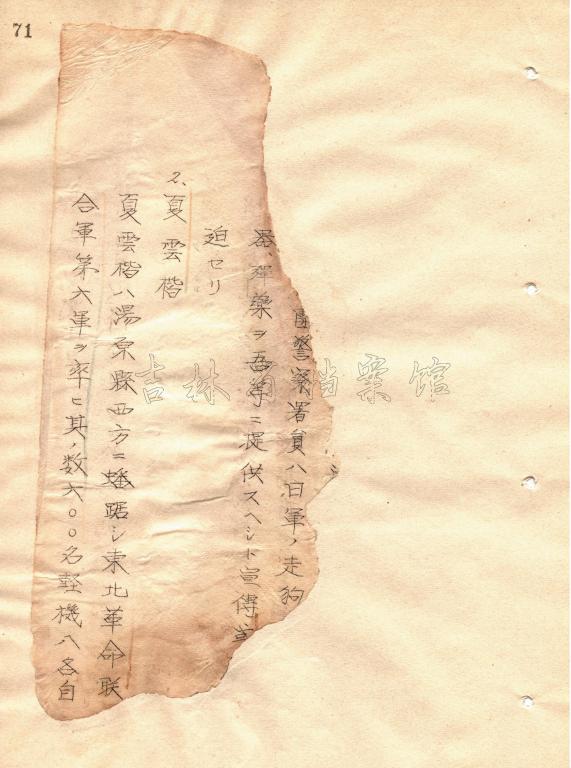 71
国警察署員ハ日軍ノ走狗
器、弾薬ヲ吾等ニ提供スヘシト宣傳
迫セリ
2、夏雲楷
夏雲楷ハ湯原縣西方ニ蟠踞シ東北革命联
合軍第六軍ヲ率ヒ其ノ数六〇〇名軽機八各自
吉林省档案馆